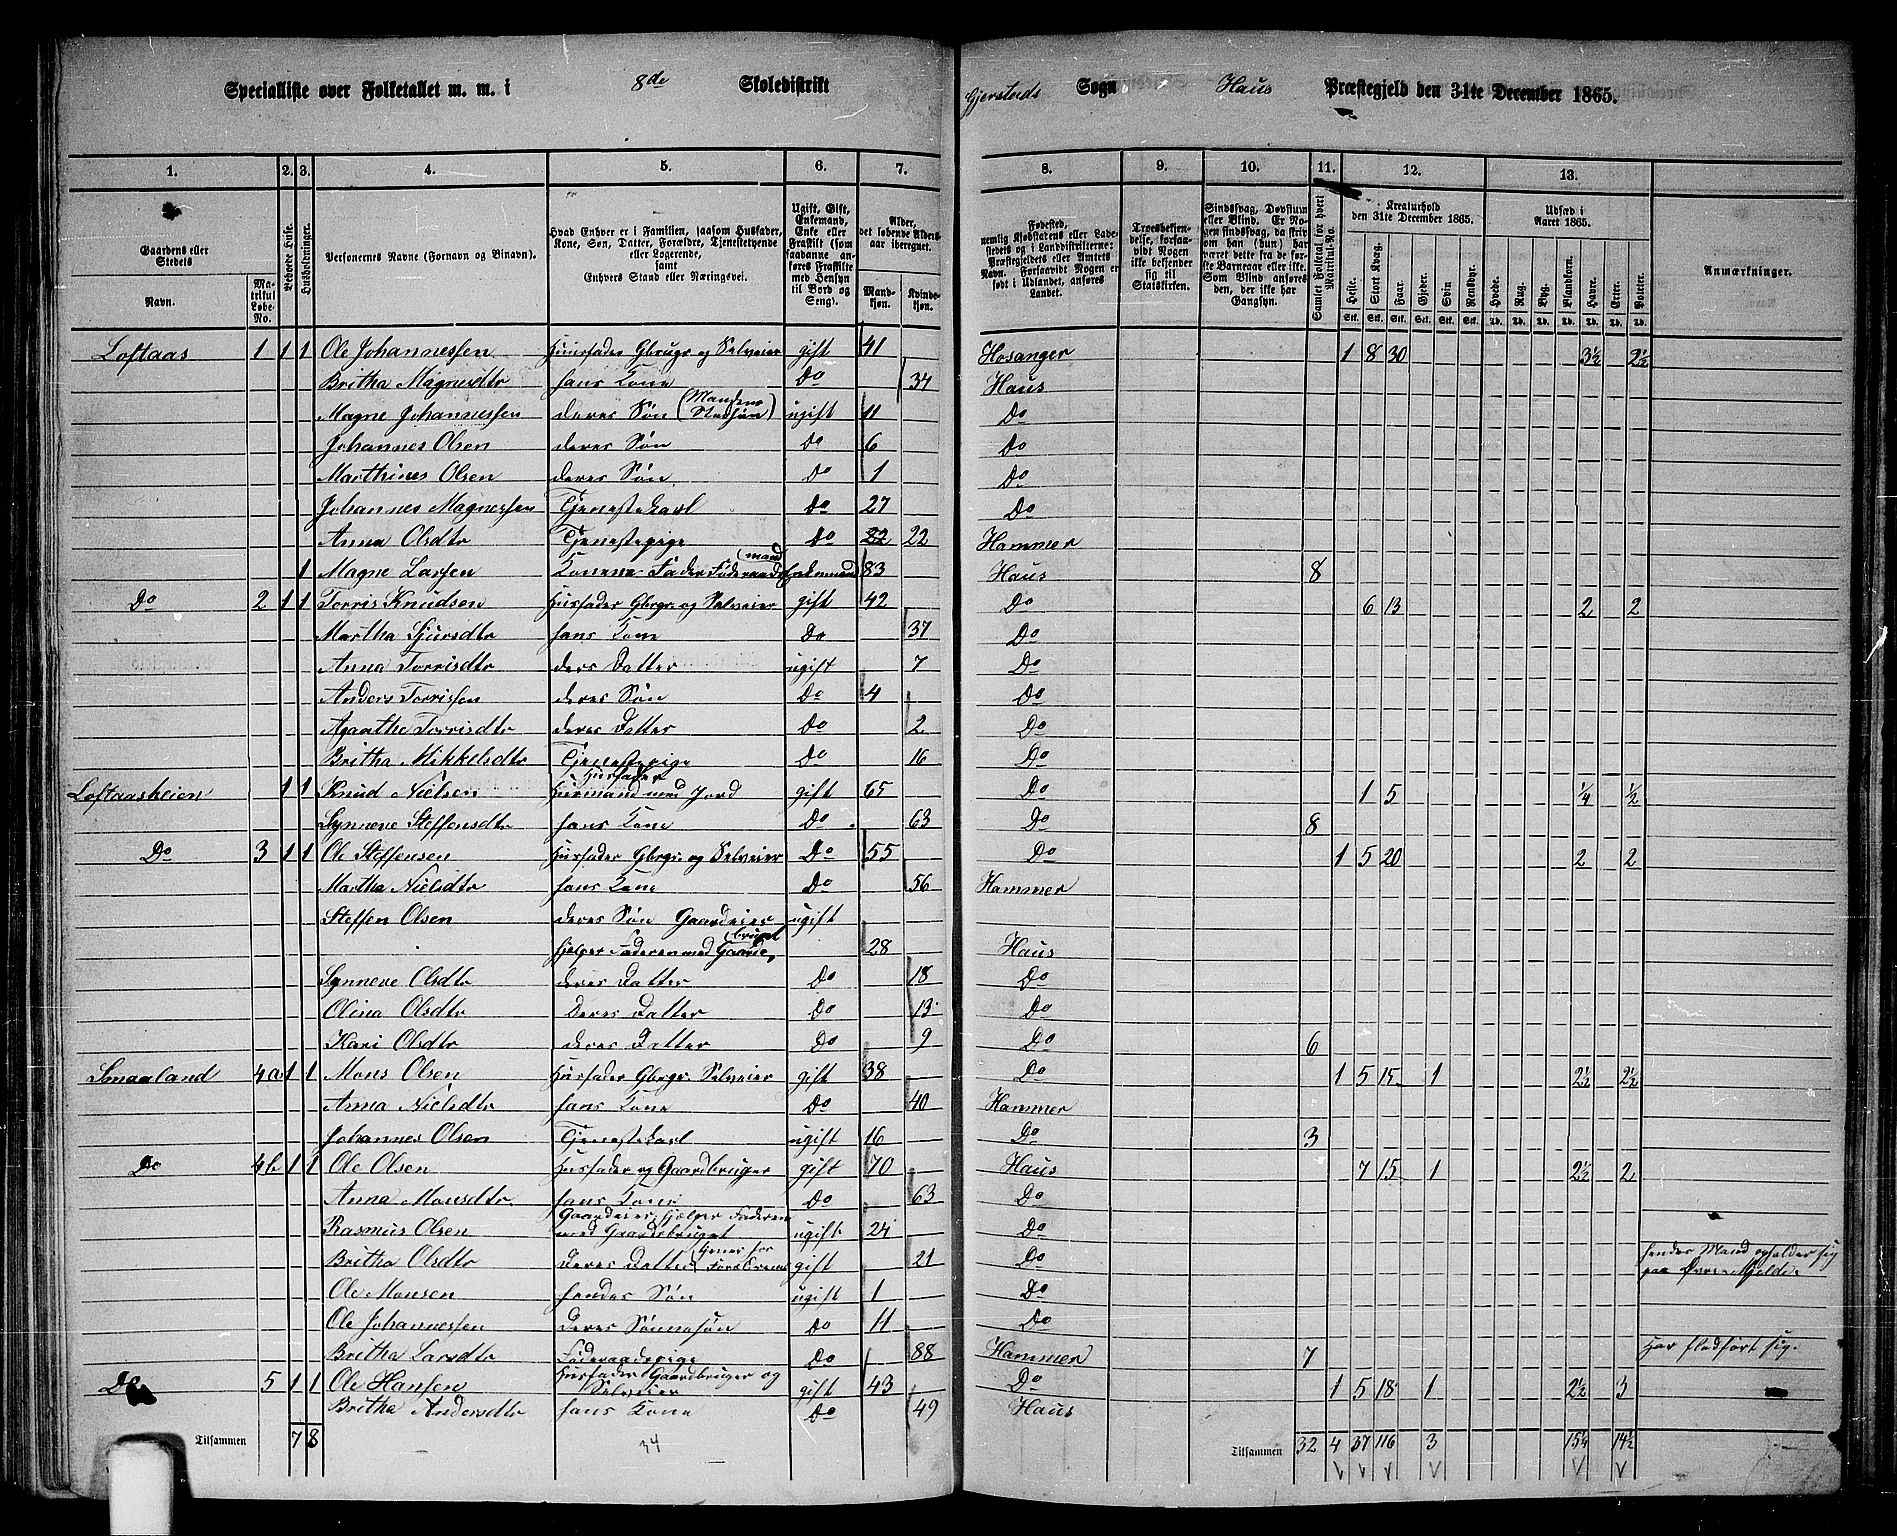 Specialliste over Folketallet m. m. i 8de Skoledistrikt Gjerstads Sogn Haus Præstegjeld den 31te December 1865.
1. 2. 3. 4. 5. 6. 7. 8. 9. 10. 11. 12. 13.
Gaardens eller Stedets Navn. Matrikul Løbe-No. Beboede Huse. Husholdninger. Personernes Navne (Fornavn og Binavn). Hvad Enhver er i Familien, saasom Husfader, Kone, Søn, Datter, Forældre, Tjenestetyende eller Logerende, samt Enhvers Stand eller Næringsvei. Ugift, Gift, Enkemand, Enke eller Fraskilt (som saadanne anføres Fraskilte med Hensyn til Bord og Seng). Alder, det løbende Aldersaar iberegnet. Mandkjøn. Kvindekjøn. Fødested, nemlig Kjøbstadens eller Ladestedets og i Landdistrikterne: Præstegjeldets eller Amtets Navn. Forsaavidt Nogen er født i Udlandet, anføres Landet. Troesbekjendelse, forsaavidt Nogen ikke bekjender sig til Statskirken. Sindssvag, Døvstum eller Blind. Er Nogen sindssvag, da skriv om han (hun) har været dette fra de første Barneaar eller ikke. Som Blind anføres den, der ikke har Gangsyn. Samlet Folketal for hvert Matrikul-No. Kreaturhold den 31te December 1865. Heste. Stort Kvæg. Faar. Gjeder. Svin. Rensdyr. Udsæd i Aaret 1865. Hvede. Rug. Byg. Blandkorn. Havre. Erter. Poteter. Anmærkninger.
Loftaas 1 1 1 Ole Johannessen Huusfader Gbrugr og Selveier gift 41 Hosanger 1 8 30 3½ 2½
Britha Magnesdtr hans Kone Do 34 Haus
Magne Johannessen deres Søn (Mandens Stedsøn) ugift 11 Do
Johannes Olsen deres Søn Do 6 Do
Marthines Olsen deres Søn Do 1 Do
Johannes Magnessen Tjenestekarl Do 27 Do
Anna Olsdtr Tjenestepige Do 22 22 Hammer
1 Magne Larsen Konens Fader Føderaadsmand Enkemand 83 Haus 8
Do 2 1 1 Torris Knudsen Husfader Gbrgr. og Selveier gift 42 Do 6 13 2 2
Martha Sjursdtr hans Kone Do 37 Do
Anna Torrisdtr ders Datter ugift 7 Do
Anders Torrissen deres Søn Do 4 Do
Agaathe Torrisdtr deres Datter Do 2 Do
Britha Mikkelsdtr Tjenestepige Do 16 Do
Loftaasheien 1 1 Knud Nielsen Husfader Husmand med Jord gift 65 Do 1 5 ¼ ½
Synneve Steffensdtr hans Kone Do 63 Do 8
Do 3 1 1 Ole Steffensen Husfader Gbrgr. og Selveier Do 55 Do 1 5 20 2 2
Martha Nielsdtr hans Kone Do 56 Hammer
Steffen Olsen deres Søn Gaardeier ugift
hjelper Faderen med Gaardsbruget 28 Haus
Synneve Olsdtr deres Datter Do 18 Do
Olina Olsdtr Deres Datter Do 13 Do
Kari Olsdtr deres Datter Do 9 Do 6
Smaaland 4a 1 1 Mons Olsen Husfader Gbrgr. Selveier gift 38 Do 1 5 15 1 2½ 2½
Anna Nielsdtr hans Kone Do 40 Hammer
Johannes Olsen Tjenestekarl ugift 16 Do 3
Do 4b 1 1 Ole Olsen Husfader og Gaardbruger gift 70 Haus 7 15 1 2½ 2
Anna Monsdtr hans Kone Do 63 Do
Rasmus Olsen Gaardeier, hjelper Faderen med Gaardsbruget ugift 24 Do
Britha Olsdtr deres Datter tjener for Forældrene gift 21 Do hendes Mand opholder sig paa Øvre Mjelde.
Ole Monsen hendes Søn ugift 1 Do
Ole Johannessen deres Sønnesøn Do 11 Do
Britha Larsdtr Føderaadspige Do 88 Hammer 7 Har fledført sig.
Do 5 1 1 Ole Hansen Husfader Gaardbruger og Selveier gift 43 Do 1 5 18 1 2½ 3
Britha Andersdtr hans Kone Do 49 Haus
Tilsammen 7 8 34 Tilsammen 32 4 37 116 3 15¼ 14½